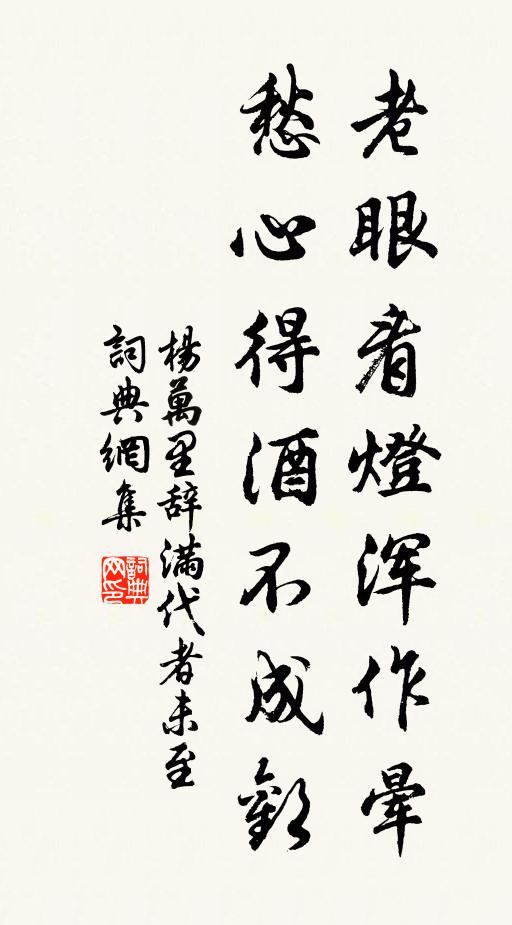 老眼看燈渾作暈
愁心得酒不成歡
楊萬里辞滿代者未至
詞典網集
詞典网印